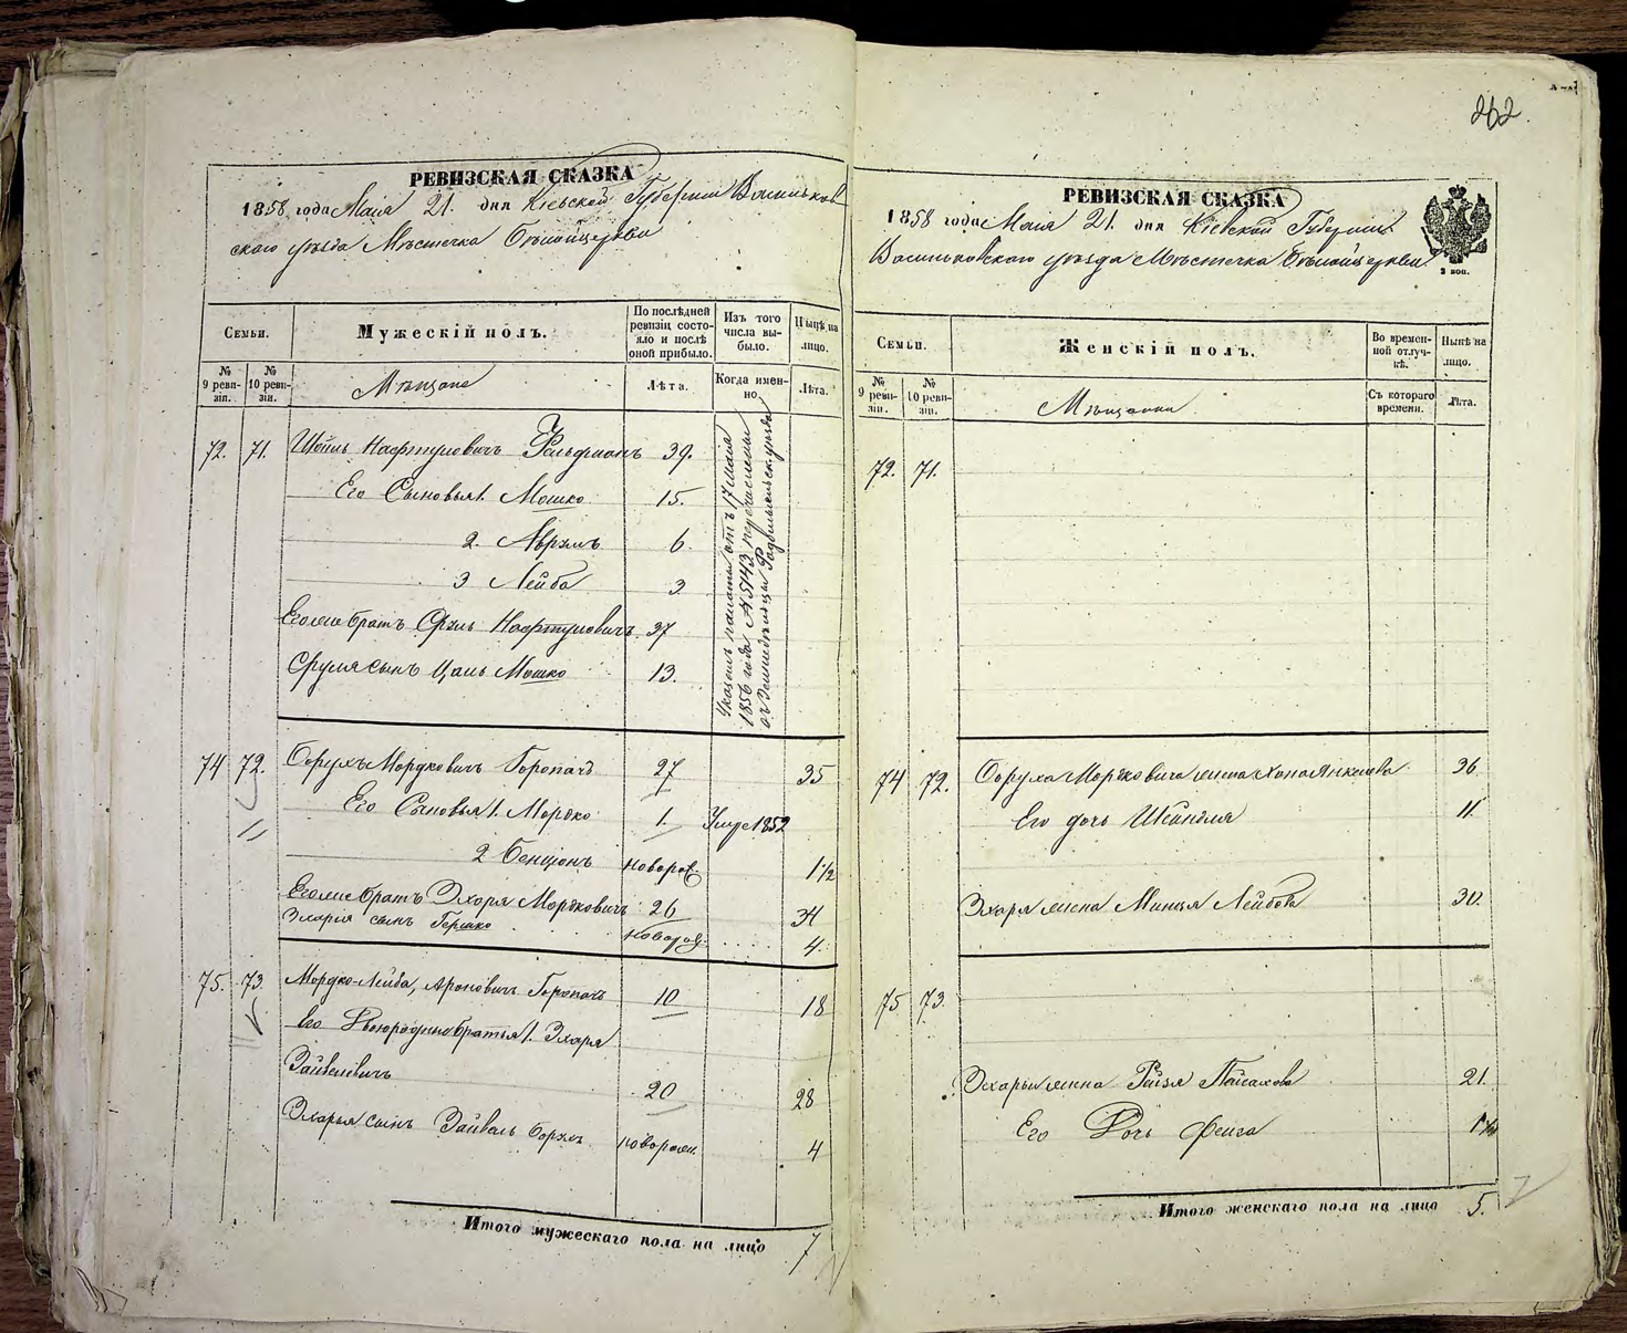 262.
РЕВИЗСКАЯ СКАЗКА
1858 года Маія 21. дня Кіевской Губерніи Васильков
скаго уѣзда Мѣстечка Бѣлойцеркви
Семьи.
Мужескій полъ.
По послѣдней ревизіи состояло и послѣ оной прибыло.
Изъ того числа выбыло.
Нынѣ на лицо.
№ 9 ревизіи.
№ 10 ревизіи.
Мѣщане
Лѣта.
Когда именно
Лѣта.
72. 71. Нафтуловичъ 39.
Его Сыновья 1. Мошко 15.
2. Аврумъ 6.
3 Лейба 3
Егоже братъ Сруль Нафтуловичъ 37
Сруля сынъ Мошко 13.
Указомъ палаты отъ 17 Мая
1856 года № 5143 перечислены
въ Земледѣльцы
74 72. Борухъ Мордковичъ Горопачъ 27 35
Его Сыновья 1. Мордко 1. Умре 1852
2 Бенціонъ новорож. 1 1/2
Егоже братъ Эхоря Мордковичъ 26 34
сынъ Гершко новорож. 4.
75. 73. Мордко-Лейба, Ароновичъ Горопачъ 10 18
Его Двоюродные братья 1. Эхоря
Зайвеловичъ 20 28
Эхорья сынъ Зайвель новорож. 4
Итого мужескаго пола на лицо 7
РЕВИЗСКАЯ СКАЗКА
1858 года Маія 21. дня Кіевской Губерніи
Васильковскаго уѣзда Мѣстечка Бѣлойцеркви
2 коп.
Семьи.
Женскій полъ.
Во временной отлучкѣ.
Нынѣ на лицо.
№ 9 ревизіи.
№ 10 ревизіи.
Мѣщанки
Съ котораго времени.
Лѣта.
72. 71.
74 72. Боруха Мордковича жена Хана Янкелева 36
Его дочь Шейндля 11.
Эхоря жена Минця Лейбова 30.
75 73.
Эхорьи жена Рейзя Пейсахова 21.
Его Дочь Фейга
Итого женскаго пола на лицо 5.